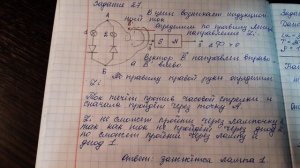 Задание 27
В цепи возникает индукцион-
ный ток
Определим по правилу Ленца
направление
A
S N
B
Вектор B направлен вправо
а B влево
По правилу правой руки определим
Ток течёт против часовой стрелки и
сначала пройдёт через точку A
не сможет пройти через лампочку
так как ток не пройдёт через диод 2
но сможет пройти через лампу и
диод 1
Ответ: зажжётся лампа 1